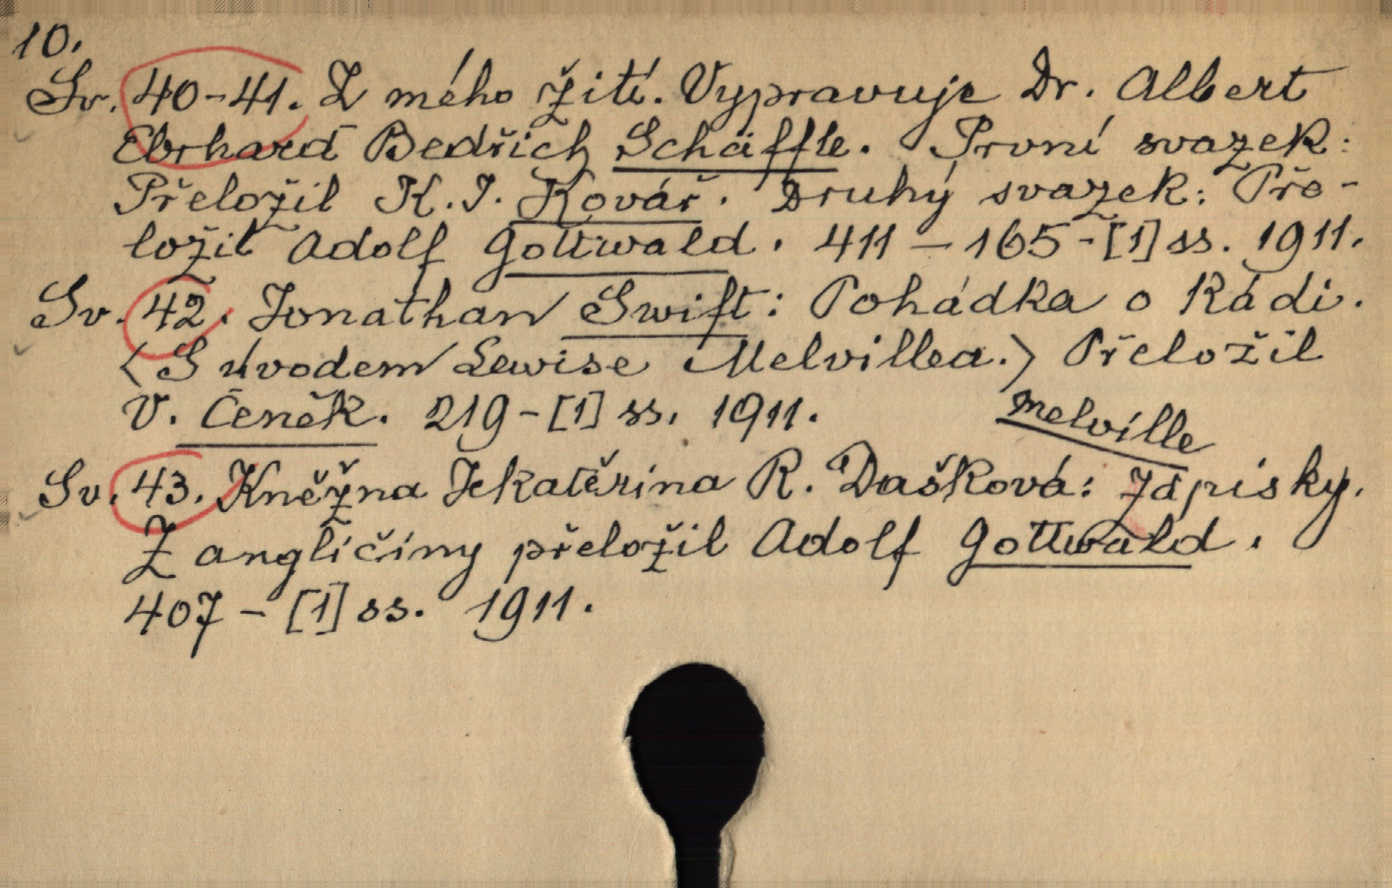 10.
Sv. 40-41. Z mého žití. Vypravuje Dr. Albert
Ebrhard Bedřich Schäffle. První svazek:
Přeložil K. J. Kovář. Druhý svazek: Pře-
ložil Adolf Gottwald. 411 – 165-[1] ss. 1911.
Sv. 42. Jonathan Swift: Pohádka o kádi.
(S úvodem Lewise Melvillea.) Přeložil
V. Čeněk. 219-[1] ss. 1911.
Melville
Sv. 43. Kněžna Jekatěrina R. Dašková: Zápisky.
Z angličiny přeložil Adolf Gottwald.
407 – [1] ss. 1911.